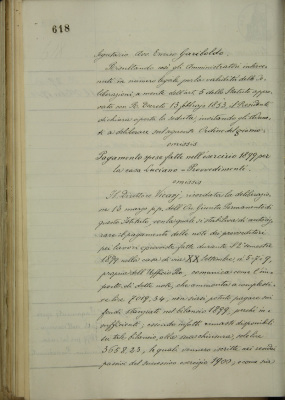 618
Segretario Avv. Enrico Garibaldo.
Risultando che gli Amministratori interve-
nuti in numero legale per la validità delle de-
liberazioni, a mente dell'art. 5 dello Statuto appro-
vato con R. Decreto 13 1883, il Presidente
dichiara aperta la seduta, invitando gli
a deliberare sul seguente Ordine del giorno:
omissis
Pagamento spese fatte nell'esercizio 1899, per
la casa Luciano - Provvedimenti.
omissis
Il Direttore ricordata la deliberazione
13 marzo p.p. dell'On. Giunta Permanente di
questo Istituto, con la quale si stabiliva di
il pagamento delle note dei provveditori
per lavori e provviste fatte durante il 2° semestre
1899 nella casa di via XX Settembre, n. 5-7-9,
propria dell'Ufficio Pio, comunica come l'im-
porto di dette note, che ammontava a complessi-
ve lire 9019.34, non siasi potuto pagare coi
fondi stanziati nel bilancio 1899, perché in-
sufficienti, essendo infatti rimaste disponibili
su tale bilancio, alla sole lire
3658.23, le quali vennero iscritte nei residui
passivi del successivo esercizio 1900, e come sia-